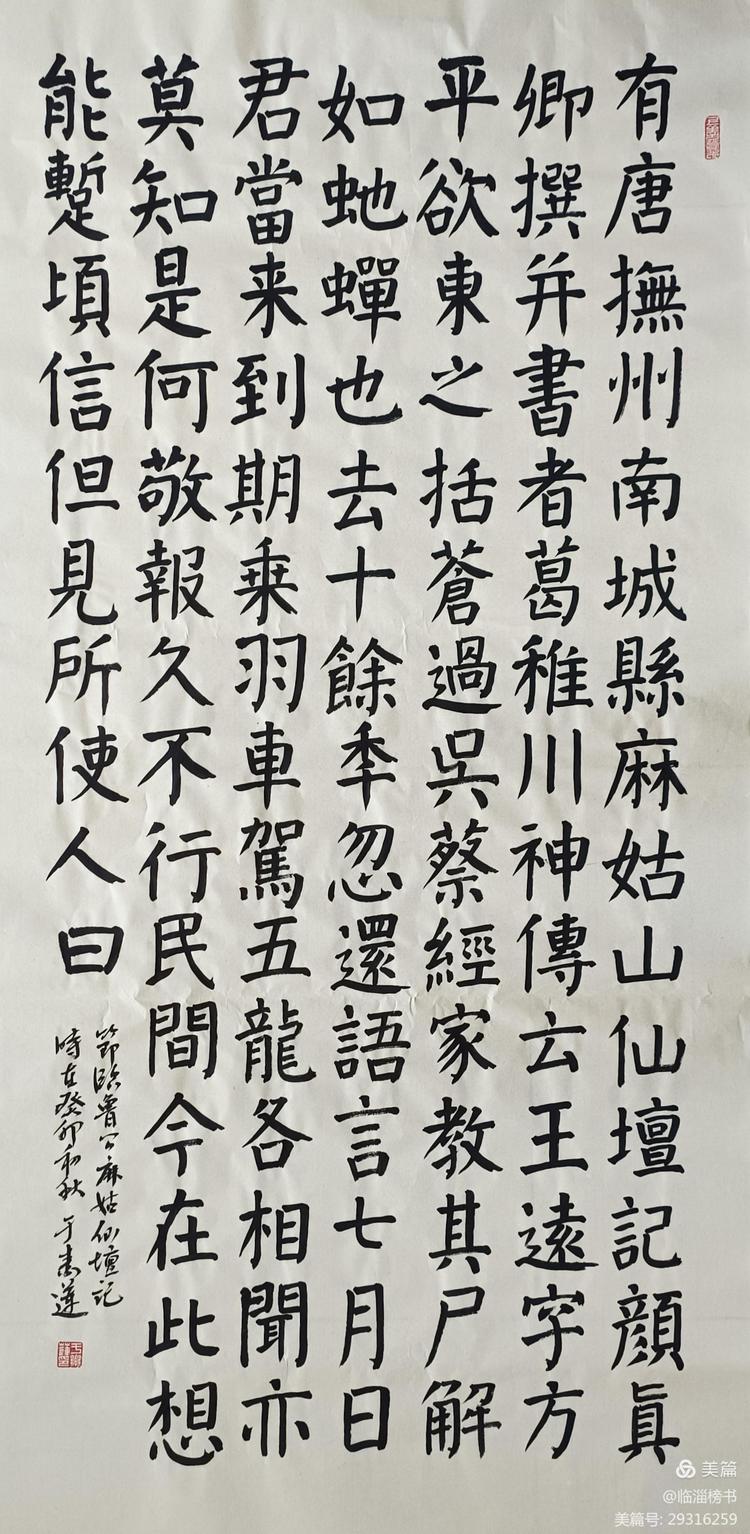 有唐撫州南城縣麻姑山仙壇記顔真
卿撰并書者葛稚川神傳云王遠字方
平欲東之括蒼過吳蔡經家教其尸解
如虵蟬也去十餘季忽還語言七月日
君當来到期乗羽車駕五龍各相聞亦
莫知是何敬報久不行民間今在此想
能蹔頃信但見所使人曰
節臨魯公麻姑仙壇記
時在癸卯初秋 于志蓮
美篇
@临淄榜书
美篇号: 29316259